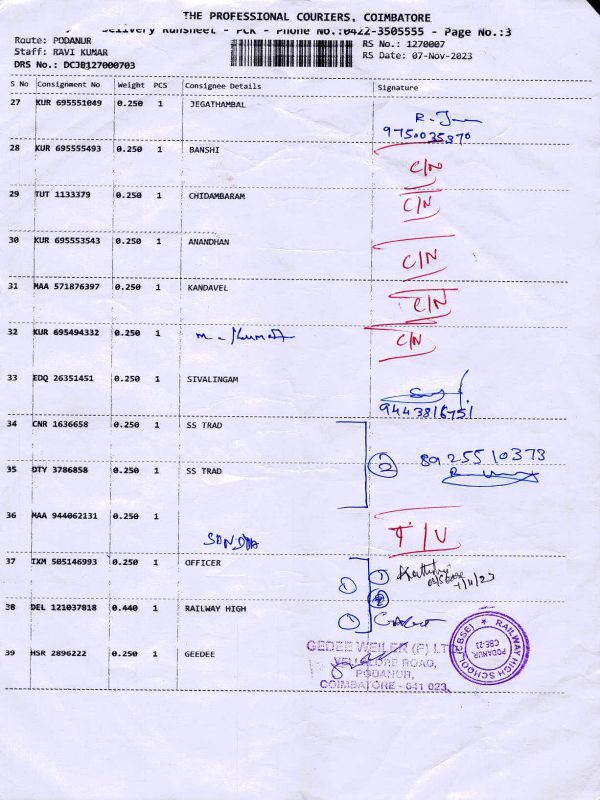 THE PROFESSIONAL COURIERS, COIMBATORE
Delivery Runsheet - PCR - Phone No.:0422-3505555 - Page No.:3
Route: PODANUR
RS No.: 1270007
Staff: RAVI KUMAR
RS Date: 07-Nov-2023
DRS No.: DCJB127000703
S No Consignment No Weight PCS Consignee Details Signature
27 KUR 695551049 0.250 1 JEGATHAMBAL
28 KUR 695555493 0.250 1 BANSHI C/N
29 TUT 1133379 0.250 1 CHIDAMBARAM C/N
30 KUR 695553543 0.250 1 ANANDHAN C/N
31 MAA 571876397 0.250 1 KANDAVEL C/N
32 KUR 695494332 0.250 1 M. Kumar C/N
33 EDQ 26351451 0.250 1 SIVALINGAM
9443816751
34 CNR 1636658 0.250 1 SS TRAD
2 8925510373
35 DTY 3786858 0.250 1 SS TRAD
36 MAA 944062131 0.250 1 T/V
37 IXM 505146993 0.250 1 OFFICER
38 DEL 121037818 0.440 1 RAILWAY HIGH
39 HSR 2896222 0.250 1 GEEDEE
GEDEE WEILER (P) LTD
VELLALORE ROAD,
PODANUR,
COIMBATORE - 641 023.
RAILWAY HIGH SCHOOL (CBSE)
PODANUR,
CBE-23